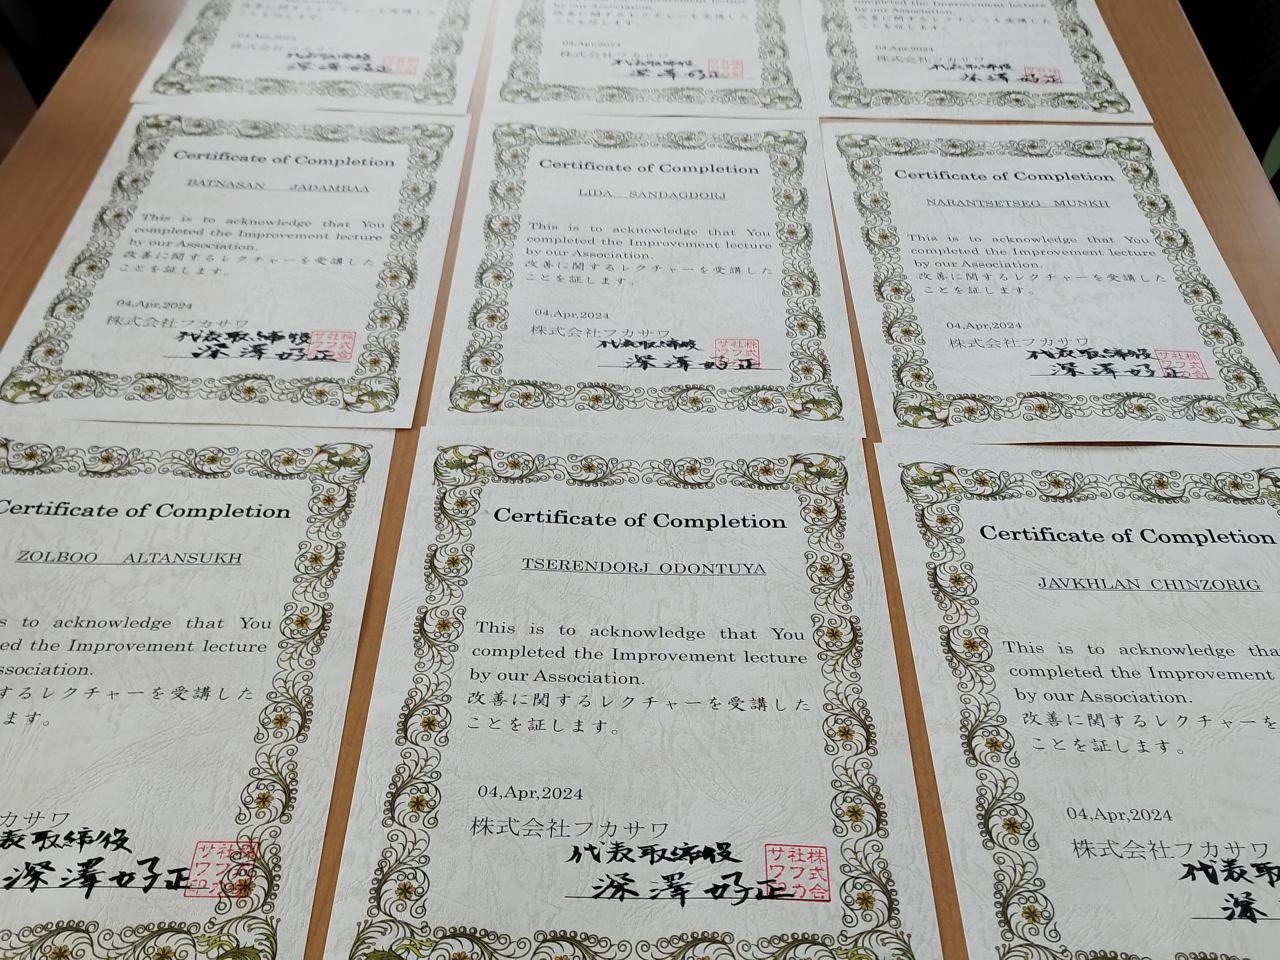 ことを証します。
04,Apr,2024
株式会社フカサワ
代表取締役
深澤好正
改善に関するレクチャーを受講した
ことを証します。
04,Apr,2024
株式会社フカサワ
代表取締役
深澤好正
ことを証します。
04,Apr,2024
株式会社フカサワ
代表取締役
深澤好正
Certificate of Completion
BATNASAN JADAMBAA
This is to acknowledge that You
completed the Improvement lecture
by our Association.
改善に関するレクチャーを受講した
ことを証します。
04,Apr,2024
株式会社フカサワ
代表取締役
深澤好正
Certificate of Completion
LIDA SANDAGDORJ
This is to acknowledge that You
completed the Improvement lecture
by our Association.
改善に関するレクチャーを受講した
ことを証します。
04,Apr,2024
株式会社フカサワ
代表取締役
深澤好正
Certificate of Completion
NARANTSETSEG MUNKH
This is to acknowledge that You
completed the Improvement lecture
by our Association.
改善に関するレクチャーを受講した
ことを証します。
04,Apr,2024
株式会社フカサワ
代表取締役
深澤好正
Certificate of Completion
ZOLBOO ALTANSUKH
s to acknowledge that You
ed the Improvement lecture
ssociation.
するレクチャーを受講した
ます。
カサワ
表取締役
深澤好正
Certificate of Completion
TSERENDORJ ODONTUYA
This is to acknowledge that You
completed the Improvement lecture
by our Association.
改善に関するレクチャーを受講した
ことを証します。
04,Apr,2024
株式会社フカサワ
代表取締役
深澤好正
株式会社フカサワ印
Certificate of Completion
JAVKHLAN CHINZORIG
This is to acknowledge tha
completed the Improvement
by our Association.
改善に関するレクチャーを
ことを証します。
04,Apr,2024
株式会社フカサワ
代表取
深